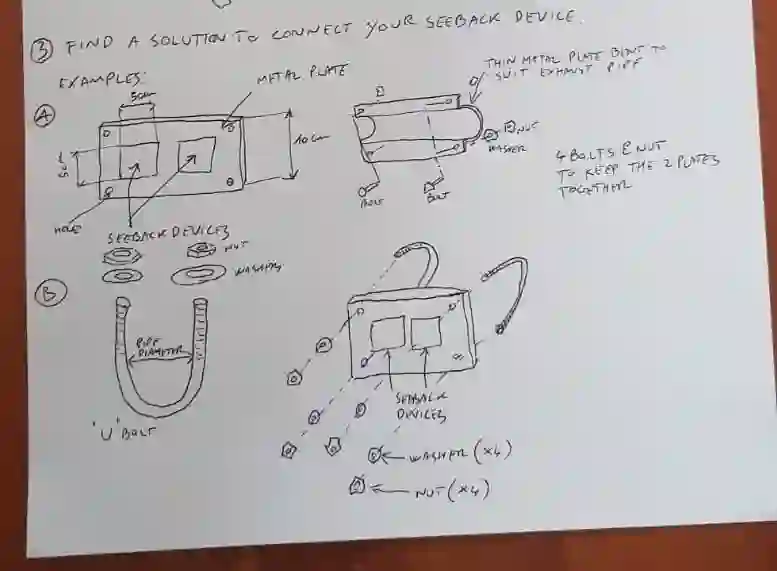 ③ FIND A SOLUTION TO CONNECT YOUR SEEBACK DEVICE.
EXAMPLES:
A
5cm
METAL PLATE
10cm
5cm
HOLE
SEEBACK DEVICES
THIN METAL PLATE BENT TO
SUIT EXHAUST PIPE
NUT
WASHER
BOLT
BOLT
4 BOLTS & NUT
TO KEEP THE 2 PLATES
TOGETHER
B
NUT
WASHERS
PIPE
DIAMETER
'U' BOLT
SEEBACK
DEVICES
WASHER (x4)
NUT (x4)